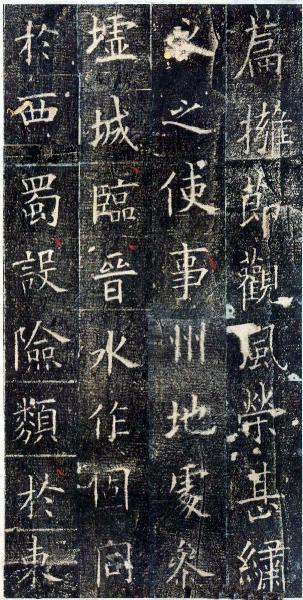 擁節觀風榮甚繡
衣之使事州地處參
墟城臨晉水作固同
於西蜀設險類於東